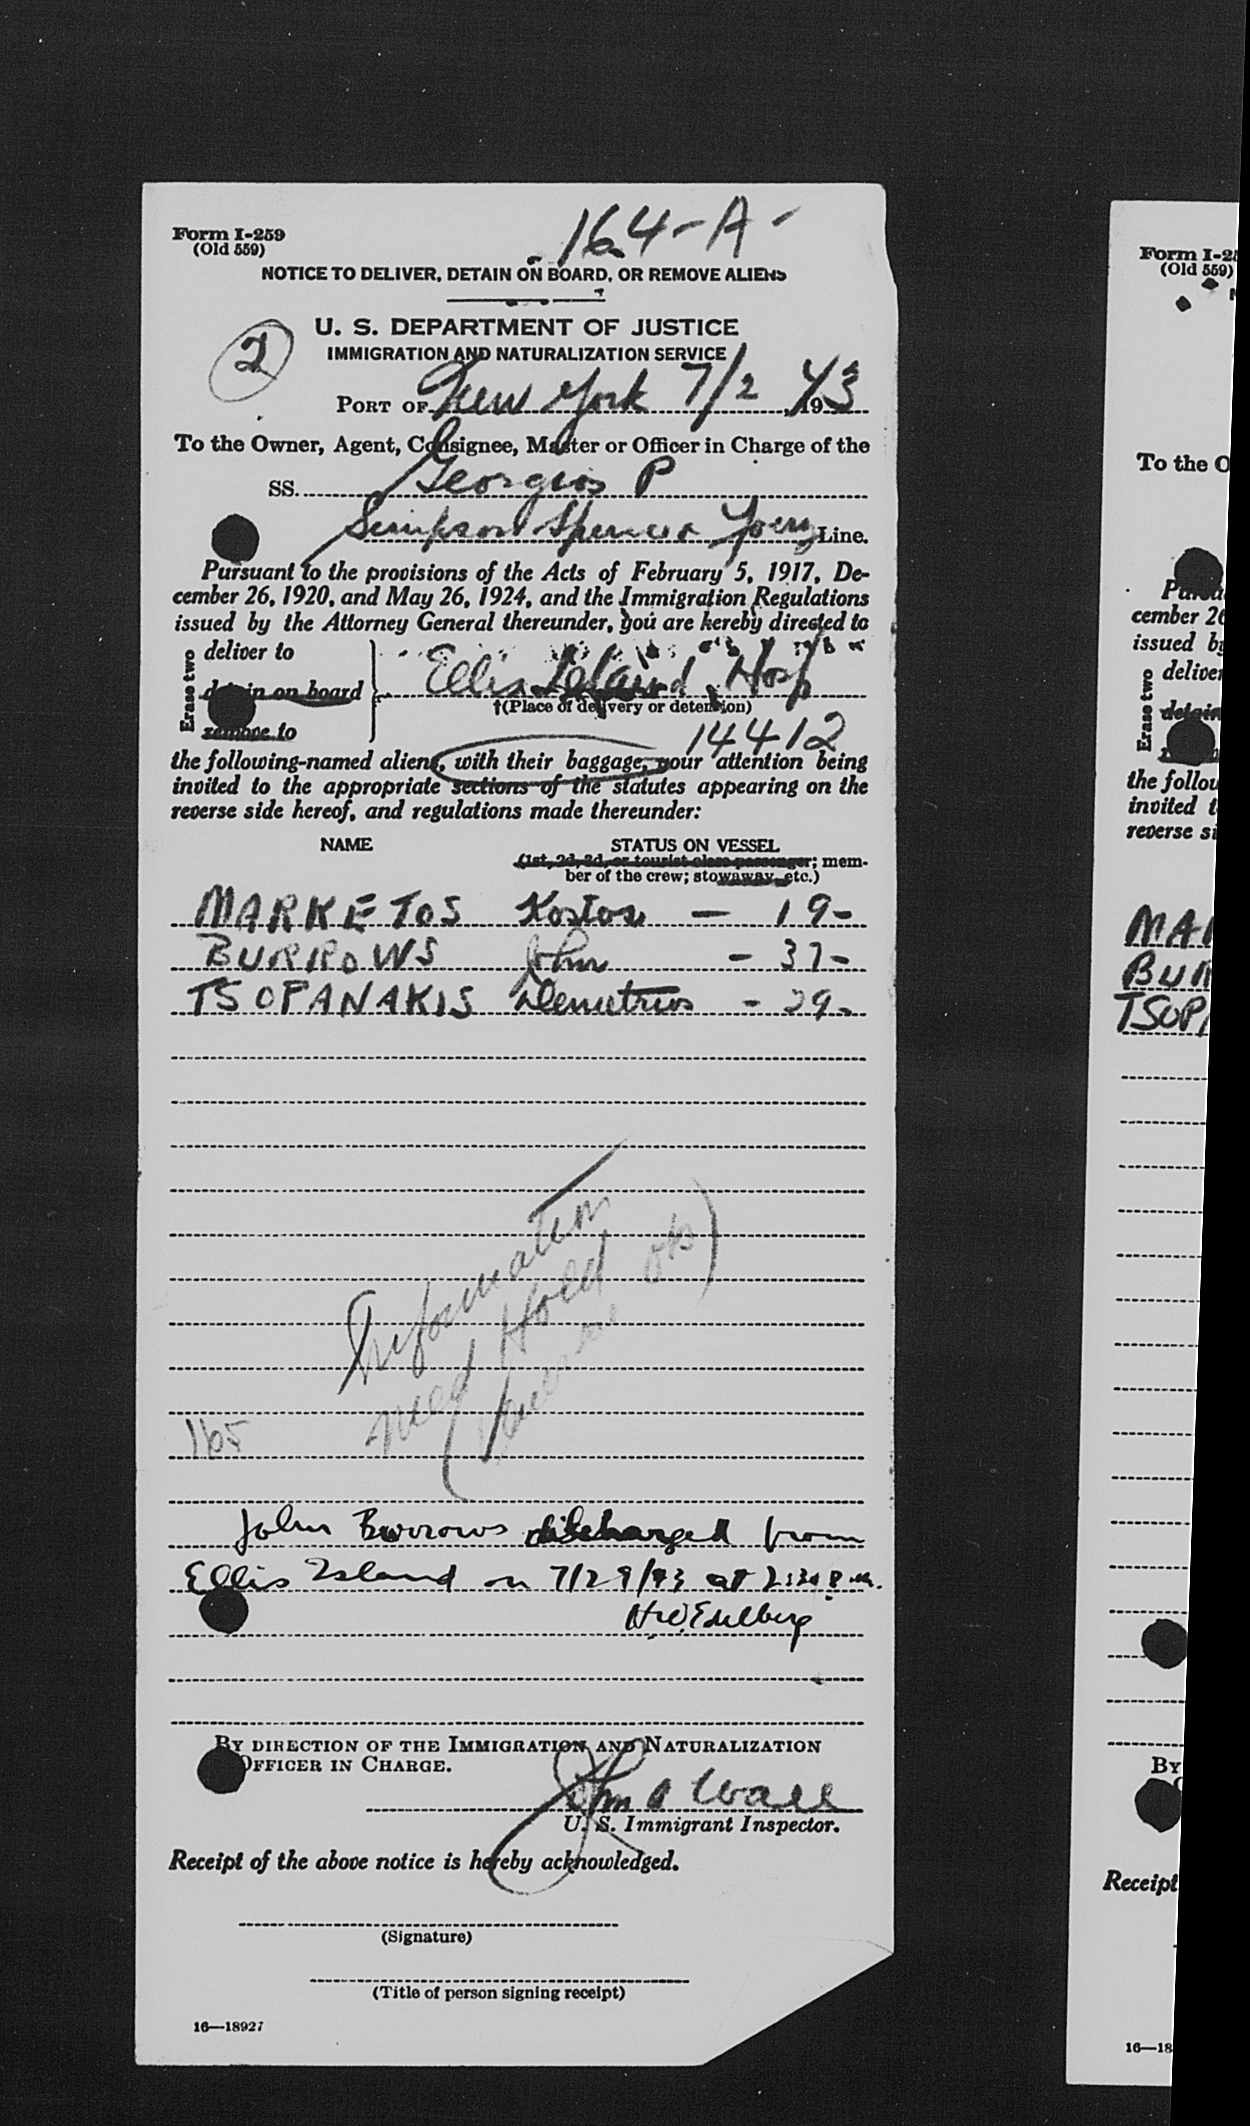 164-A-
Form I-259
(Old 559)
NOTICE TO DELIVER, DETAIN ON BOARD, OR REMOVE ALIENS
U. S. DEPARTMENT OF JUSTICE
2
IMMIGRATION AND NATURALIZATION SERVICE
PORT OF New York 7/2, 1943
To the Owner, Agent, Consignee, Master or Officer in Charge of the
SS. Georgios P
Simpson Spence & Young Line.
Pursuant to the provisions of the Acts of February 5, 1917, De-
cember 26, 1920, and May 26, 1924, and the Immigration Regulations
issued by the Attorney General thereunder, you are hereby directed to
Erase two
deliver to
detain on board
remove to
Ellis Island Hosp
†(Place of delivery or detention)
14412
the following-named aliens, with their baggage, your attention being
invited to the appropriate sections of the statutes appearing on the
reverse side hereof, and regulations made thereunder:
NAME STATUS ON VESSEL
(1st, 2d, 3d, or tourist class passenger; mem-
ber of the crew; stowaway, etc.)
MARKETOS Kostos - 19-
BURROWS John - 37-
TSOPANAKIS Demetrios - 29-
Information
Med Hold
165
John Burrows discharged from
Ellis Island on 7/29/43 at 2:30 P.M.
H.W. Edelberg
BY DIRECTION OF THE IMMIGRATION AND NATURALIZATION
OFFICER IN CHARGE.
John A Wall
U. S. Immigrant Inspector.
Receipt of the above notice is hereby acknowledged.
(Signature)
(Title of person signing receipt)
16—18927
Form I-2
(Old 559)
To the O
cember 26
issued by
Erase two
deliver
detain
the follow
invited t
reverse si
MAR
BUR
TSOPA
By
Receipt
16—18